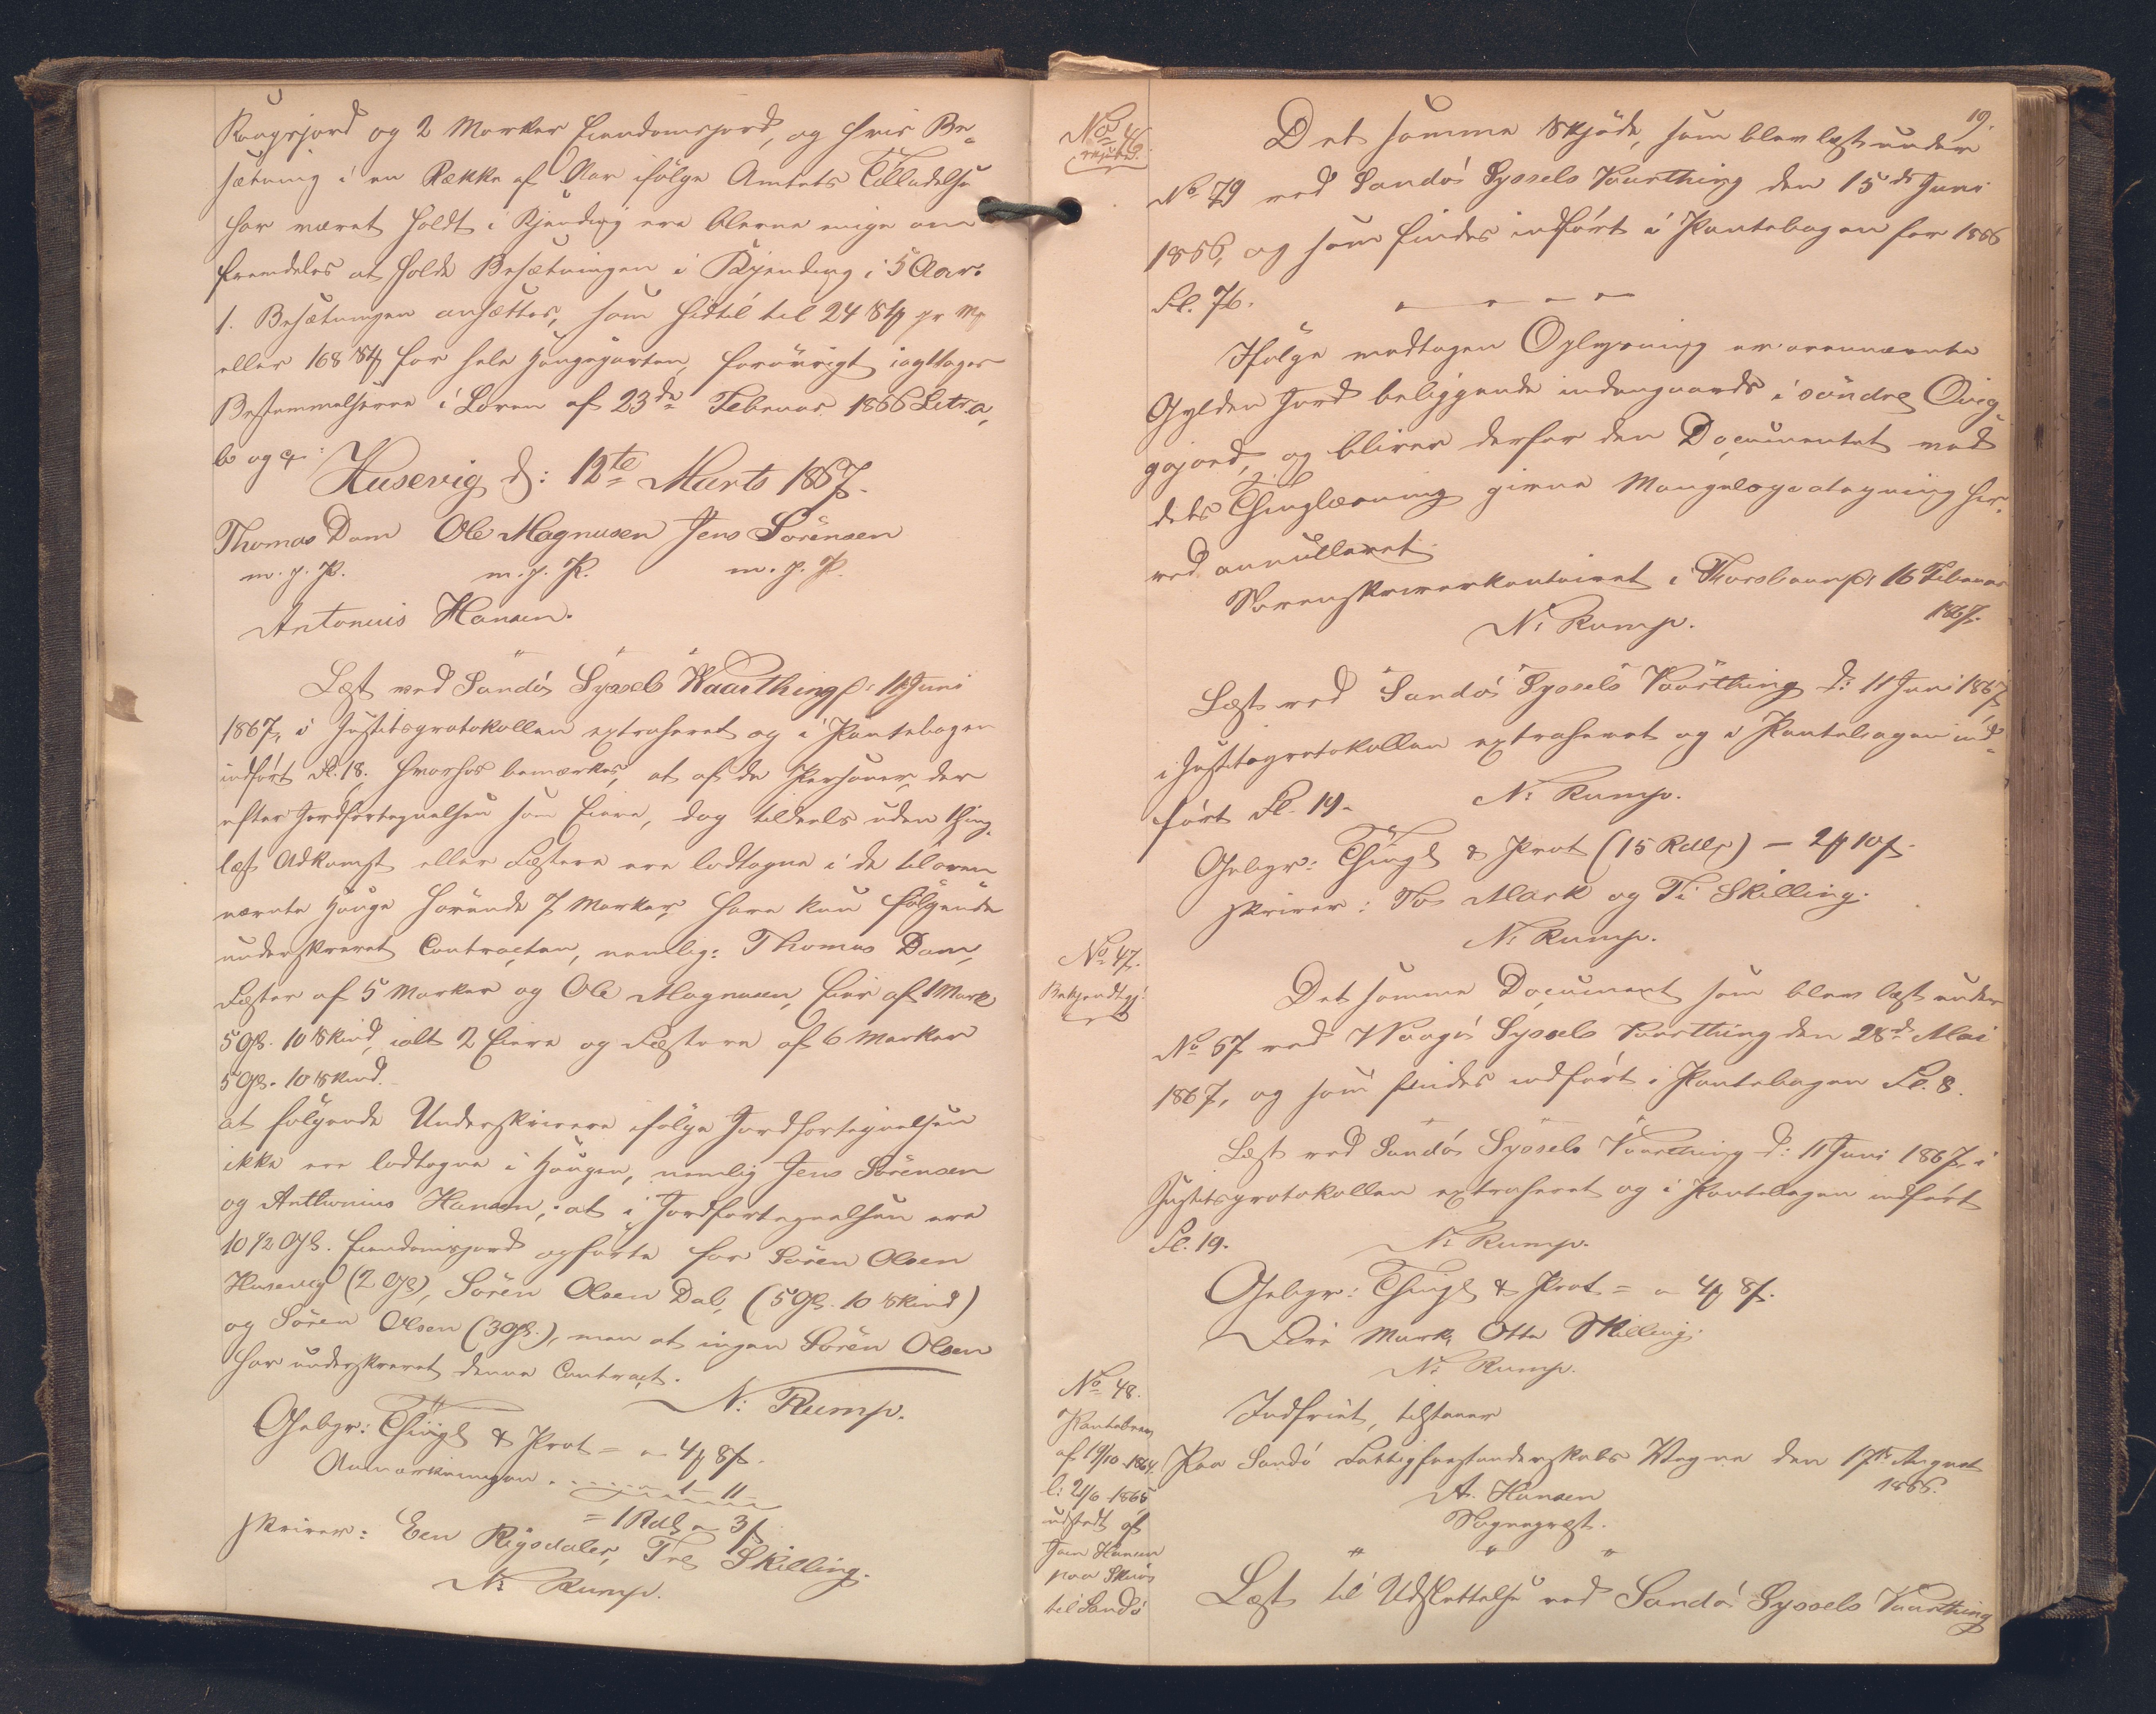 Kongsjord og 2 Marker Eiendomsjord, og hvis Be-
sætning i en Række af Aar ifølge Amtets Tilladelse
har været holdt i Kjending ere Eierne enige om
fremdeles at holde Besætningen i Kjending i 5 Aar.
1. Besætningen ansættes, som hidtil til 24 Stk pr Mk
eller 168 Stk for hele Haugeparten, forövrigt iagttages
Bestemmelserne i Loven af 23de Februar 1866 Litr a,
b og c.
Husevig d: 12te Marts 1867.
Thomas Dam Ole Magnusen Jens Sörensen
m. f. P. m. f. P. m. f. P.
Antonius Hansen.
Læst ved Sandös Syssels Vaarthing d: 11 Juni
1867, i Justitsprotokollen extraheret og i Pantebogen
indfört Fl. 18. hvorhos bemærkes, at af de Personer, der
efter Jordfortegnelsen som Eiere, dog tildeels uden thing-
læst Adkomst eller Læstere ere lodtagne i de til oven-
nævnte Hauge hörende 7 Marker, have kun fölgende
underskrevet Contracten, nemlig: Thomas Dam,
Fæster af 5 Marker og Ole Magnusen, Eier af 1 Mark
5 Gl. 10 Skind, ialt 2 Eiere og Fæstere af 6 Marker
5 Gl. 10 Skind.
at fölgende Underskrivere ifölge Jordfortegnelsen
ikke ere lodtagne i Haugen, nemlig Jens Sörensen
og Anthonius Hansen; at i Jordfortegnelsen ere
10 1/2 Gl. Eiendomsjord opförte for Sören Olsen
Husevig (2 Gl), Sören Olsen Dal, (5 Gl. 10 Skind)
og Sören Olsen (3 Gl.), men at ingen Sören Olsen
har underskrevet denne Contract.
N: Rump.
Gebyr: Thingl & Prot = " 4 Mk 8 s.
Anmærkningen . . . . " 1 - 11 -
= 1 Rdl " 3 s
skriver: Een Rigsdaler, Tre Skilling.
N: Rump.
19.
No 46
Skjöde.
Det samme Skjöde, som blev læst under
No 79 ved Sandös Syssels Vaarthing den 15de Juni
1866, og som findes indfört i Pantebogen for 1866
Fl. 76.
Ifölge modtagen Oplysning er ovennævnte
Gylden Jord beliggende indengaards i söndre Qvig-
gejord, og bliver derfor den Documentet ved
dets Thinglæsning givne Mangelspaategning her-
ved annulleret.
Sorenskriverkontoiret i Thorshavn d: 16 Februar
1867.
N: Rump.
Læst ved Sandös Syssels Vaarthing d: 11 Juni 1867,
i Justitsprotokollen extraheret og i Pantebogen ind-
fört Fl. 19. N: Rump.
Gebyr: Thingl & Prot (15 Rdlr) – 2 Mk 10 s.
skriver: To Mark og Ti Skilling.
N: Rump.
No 47.
Bekjendtg.
Det samme Document som blev læst under
No 67 ved Vaagö Syssels Vaarthing den 28de Mai
1867, og som findes indfört i Pantebogen Fl. 8.
Læst ved Sandös Syssels Vaarthing d: 11 Juni 1867, i
Justitsprotokollen extraheret og i Pantebogen indfört
Fl. 19. N: Rump.
Gebyr: Thingl & Prot = " 4 Mk 8 s.
Fire Mark, Otte Skilling.
N: Rump.
No 48.
Pantebrev
af 19/10 1864,
l: 21/6 1865
udstedt af
Joen Hansen
paa Skuö
til Sandö
Indfriet, tilstaaer
Paa Sandö Fattigforstanderskabs Vegne den 17de August
1866.
A. Hansen
Sognepræst.
Læst til Udslettelse ved Sandös Syssels Vaarthing